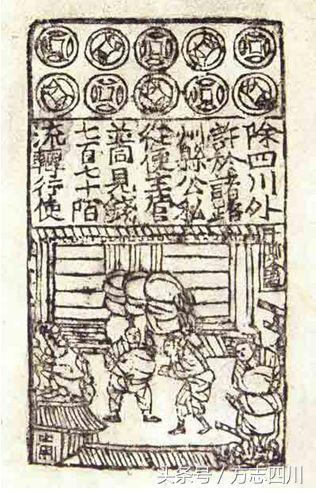 除四川外
許於諸路
州縣公私
從便主管
並同見錢
七百七十陌
流轉行使
头条号 / 方志四川